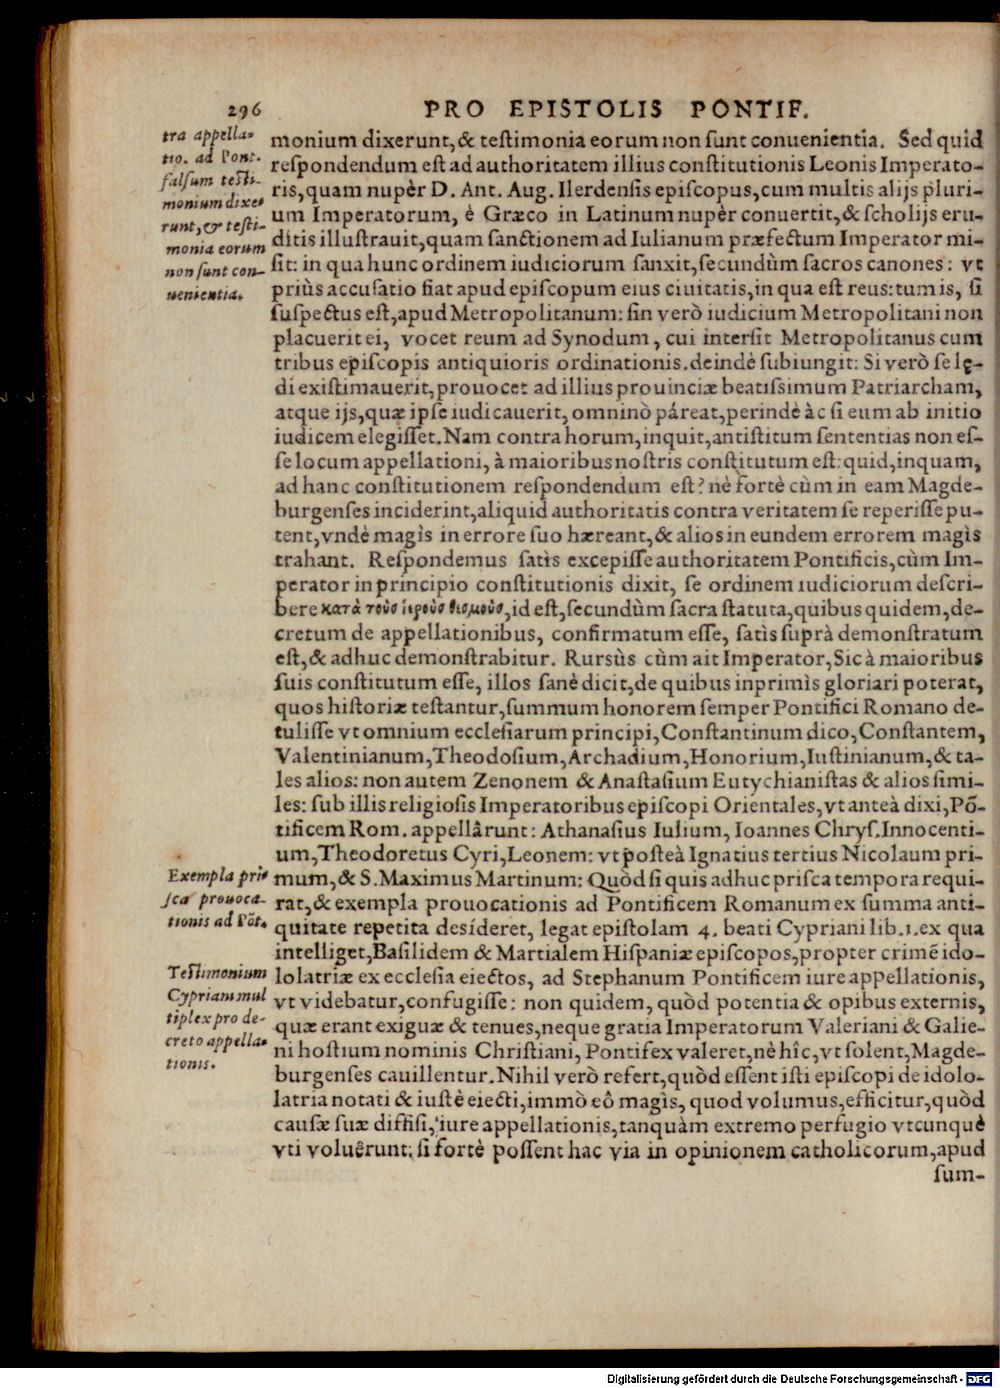 296 PRO EPISTOLIS PONTIF.
tra appella-
tio. ad Pont.
falsum testi-
monium dixe-
runt, & testi-
monia eorum
non sunt con-
uenientia.
monium dixerunt,& teſtimonia eorum non ſunt conuenientia. Sed quid
reſpondendum eſt ad authoritatem illius conſtitutionis Leonis Imperato-
ris,quam nupèr D. Ant. Aug. Ilerdenſis epiſcopus,cum multis alijs pluri-
um Imperatorum, è Græco in Latinum nupèr conuertit,& ſcholijs eru-
ditis illuſtrauit,quam ſanctionem ad Iulianum præfectum Imperator mi-
ſit: in qua hunc ordinem iudiciorum ſanxit,ſecundùm ſacros canones: vt
priùs accuſatio fiat apud epiſcopum eius ciuitatis,in qua eſt reus:tum is, ſi
ſuſpectus eſt,apud Metropolitanum: ſin verò iudicium Metropolitani non
placuerit ei, vocet reum ad Synodum, cui interſit Metropolitanus cum
tribus epiſcopis antiquioris ordinationis.deindè ſubiungit: Si verò ſe lę-
di exiſtimauerit,prouocet ad illius prouinciæ beatiſsimum Patriarcham,
atque ijs,quæ ipſe iudicauerit,omninò páreat,perindè àc ſi eum ab initio
iudicem elegiſſet.Nam contra horum,inquit,antiſtitum ſententias non eſ-
ſe locum appellationi, à maioribus noſtris conſtitutum eſt:quid,inquam,
ad hanc conſtitutionem reſpondendum eſt? nè fortè cùm in eam Magde-
burgenſes inciderint,aliquid authoritatis contra veritatem ſe reperiſſe pu-
tent,vndè magìs in errore ſuo hæreant,& alios in eundem errorem magìs
trahant. Reſpondemus ſatìs excepiſſe authoritatem Pontificis,cùm Im-
perator in principio conſtitutionis dixit, ſe ordinem iudiciorum deſcri-
bere κατὰ τοὺσ ἱεροὺσ θεσμοὺσ,id eſt,ſecundùm ſacra ſtatuta,quibus quidem,de-
cretum de appellationibus, confirmatum eſſe, ſatìs ſuprà demonſtratum
eſt,& adhuc demonſtrabitur. Rursùs cùm ait Imperator,Sic à maioribus
ſuis conſtitutum eſſe, illos ſanè dicit,de quibus inprimìs gloriari poterat,
quos hiſtoriæ teſtantur,ſummum honorem ſemper Pontifici Romano de-
tuliſſe vt omnium eccleſiarum principi,Conſtantinum dico,Conſtantem,
Valentinianum,Theodoſium,Archadium,Honorium,Iuſtinianum,& ta-
les alios: non autem Zenonem & Anaſtaſium Eutychianiſtas & alios ſimi-
les: ſub illis religioſis Imperatoribus epiſcopi Orientales,vt anteà dixi,Põ-
tificem Rom. appellârunt: Athanaſius Iulium, Ioannes Chryſ.Innocenti-
um,Theodoretus Cyri,Leonem: vt poſteà Ignatius tertius Nicolaum pri-
Exempla pri-
ſca prouoca-
tionis ad Põt.
mum,& S.Maximus Martinum: Quòd ſi quis adhuc priſca tempora requi-
rat,& exempla prouocationis ad Pontificem Romanum ex ſumma anti-
quitate repetita desíderet, legat epiſtolam 4. beati Cypriani lib.1.ex qua
intelliget,Baſilidem & Martialem Hiſpaniæ epiſcopos,propter crimẽ ido-
Testimonium
Cypriani mul
tiplex pro de-
creto appella-
tionis.
lolatriæ ex eccleſia eiectos, ad Stephanum Pontificem iure appellationis,
vt videbatur,confugiſſe: non quidem, quòd potentia & opibus externis,
quæ erant exiguæ & tenues,neque gratia Imperatorum Valeriani & Galie-
ni hoſtium nominis Chriſtiani, Pontifex valeret,nè hîc,vt ſolent,Magde-
burgenſes cauillentur.Nihil verò refert,quòd eſſent iſti epiſcopi de idolo-
latria notati & iuſtè eiecti,immò eô magìs, quod volumus,efficitur,quòd
cauſæ ſuæ diffiſi, iure appellationis,tanquàm extremo perfugio vtcunquè
vti voluêrunt: ſi fortè poſſent hac via in opinionem catholicorum,apud
ſum-
Digitalisierung gefördert durch die Deutsche Forschungsgemeinschaft - DFG